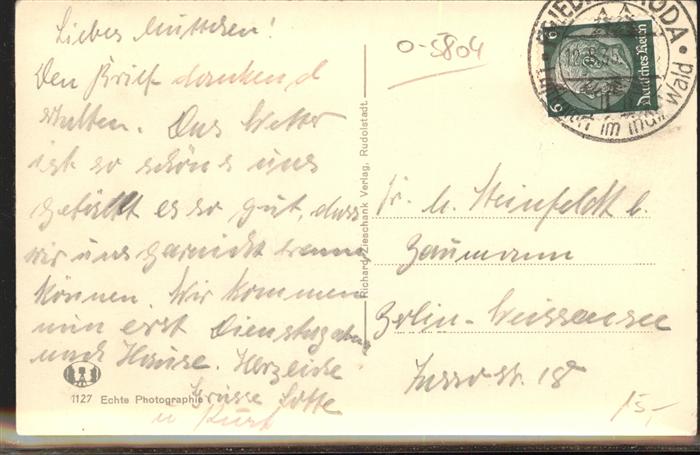 Liebes Muttchen!
Den Brief dankend
erhalten. Das Wetter
ist so schön u uns
gefällt es so gut, dass
wir uns garnicht trennen
können. Wir kommen
nun erst Dienstag
nach Hause. Herzliche
Grüsse Lotte
u Kurt
1127 Echte Photographie
Richard Zieschank Verlag, Rudolstadt.
0-5804
6 Deutsches Reich 6
im Thür Wald
Fr. M. Steinfeldt b.
Baumann
Berlin-Weissensee
str. 18
15,-